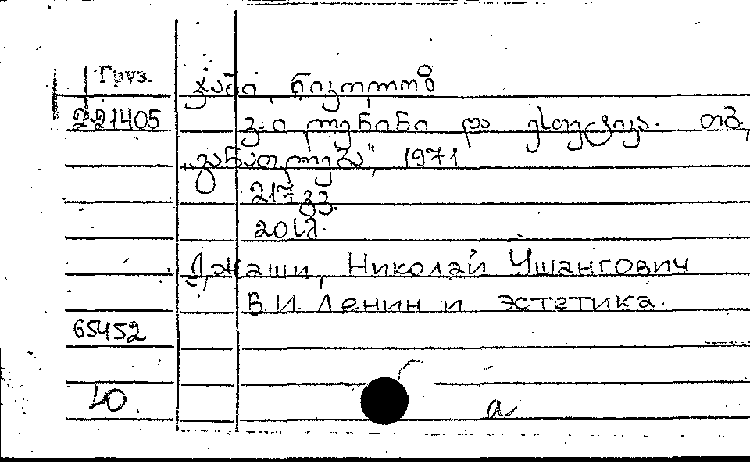 Груз. ჯაში, ნიკოლოზ
221405 ვ. ი ლენინი და ესთეტიკა. თბ,
„განათლება", 1971
217 გვ.
Джаши, Николай Ушангович
В И Ленин и эстетика.
65452
Ю а